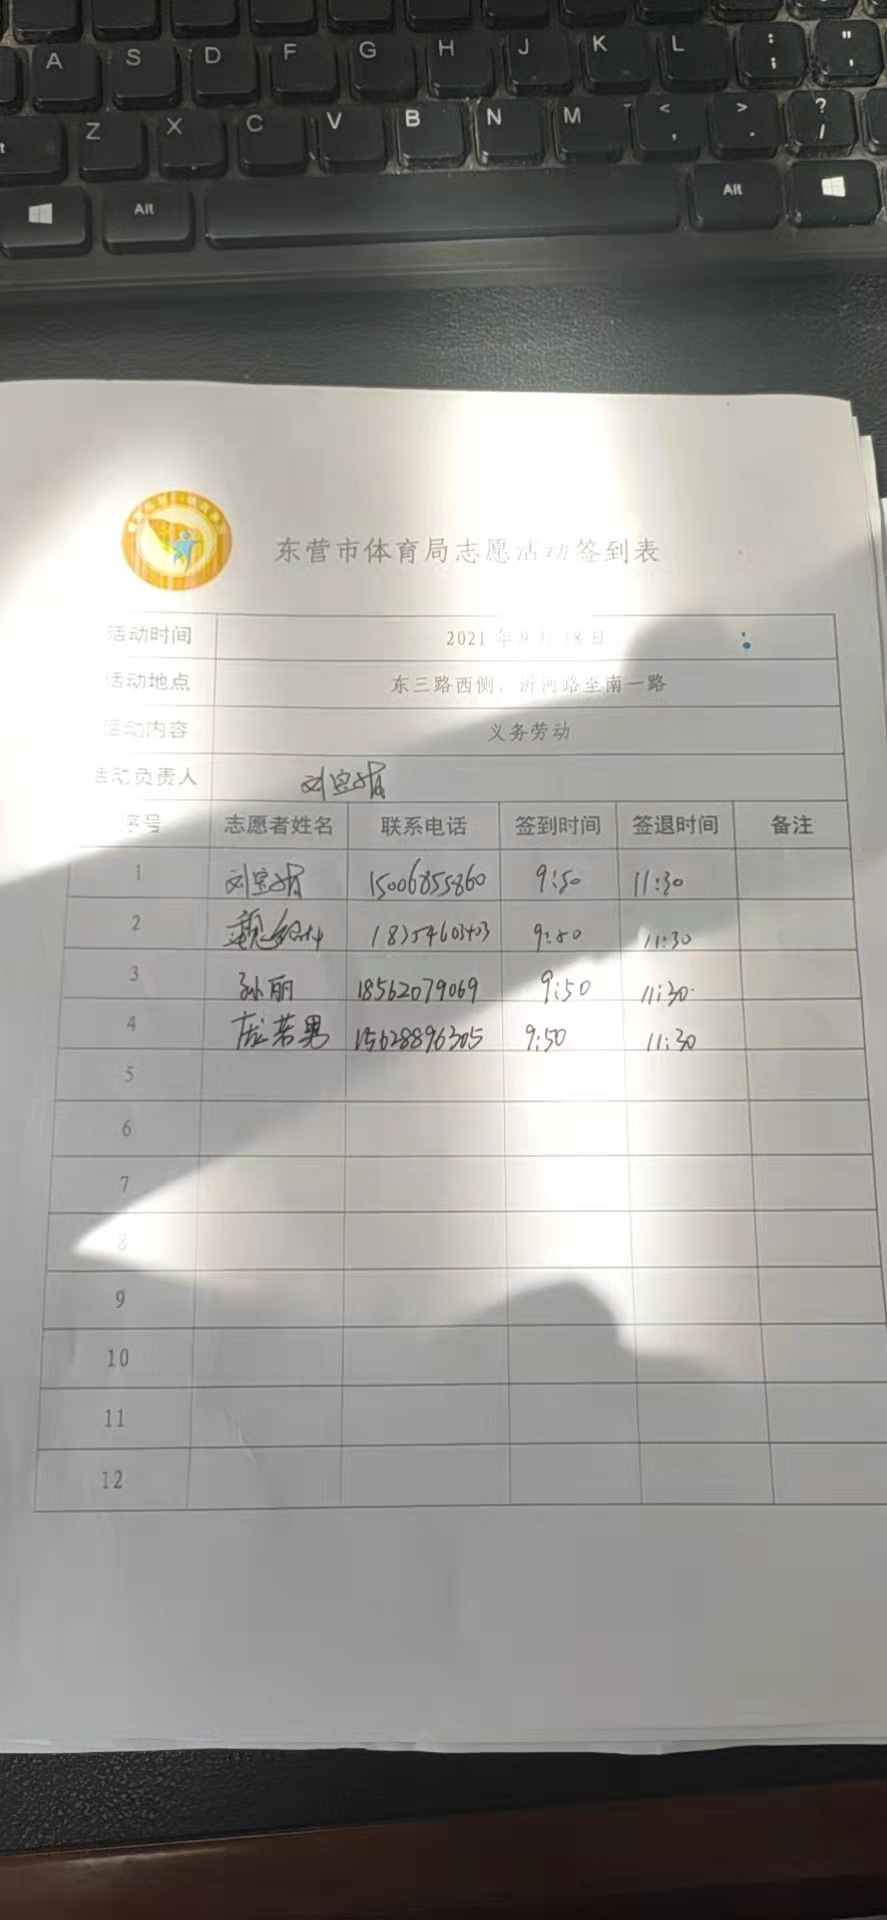 A S D F G H J K L : ; " '
Z X C V B N M < , > . ? /
Alt Alt
东营市体育局志愿活动签到表
活动时间 2021年9月18日
活动地点 东三路西侧，沂河路至南一路
活动内容 义务劳动
活动负责人 刘宝娟
序号 志愿者姓名 联系电话 签到时间 签退时间 备注
1 刘宝娟 15006855860 9:50 11:30
2 9:50 11:30
3 孙丽 18562079069 9:50 11:30
4 庞若男 15628896305 9:50 11:30
5
6
7
8
9
10
11
12